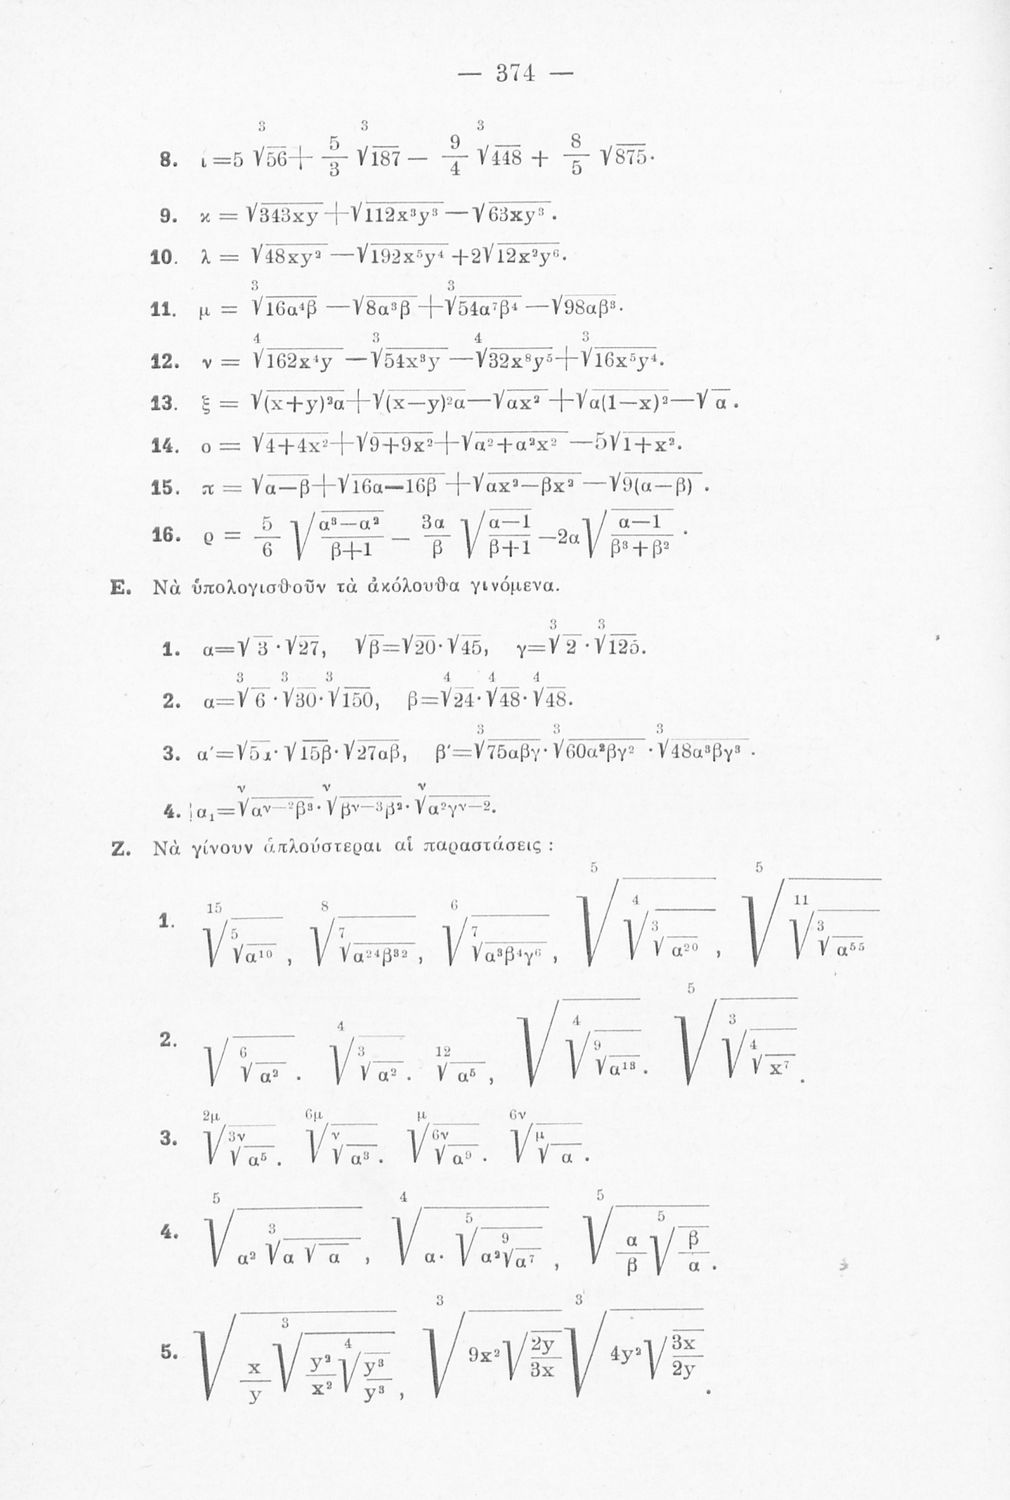 — 374 —
8. ι = 5 ∛56 + 5/3 ∛187 — 9/4 ∛448 + 8/5 √875.
9. κ = √343xy + √112x³y³ — √63xy³.
10. λ = √48xy² — √192x⁵y⁴ + 2√12x³y⁶.
11. μ = ∛16α⁴β — √8α³β + ∛54α⁷β⁴ — √98αβ³.
12. ν = ∜162x⁴y — ∛54x³y — ∜32x⁸y⁵ + ∛16x⁵y⁴.
13. ξ = √(x+y)²α + √(x—y)²α — √αx² + √α(1—x)² — √α.
14. ο = √4+4x² + √9+9x² + √α²+α²x² — 5√1+x².
15. π = √α—β + √16α—16β + √αx²—βx² — √9(α—β).
16. ϱ = 5/6 √(α³—α²)/(β+1) — 3α/β √(α—1)/(β+1) — 2α √(α—1)/(β³+β²).
Ε. Νὰ ὑπολογισθοῦν τὰ ἀκόλουθα γινόμενα.
1. α=√3·√27, √β=√20·√45, γ=∛2·∛125.
2. α=∛6·∛30·∛150, β=∜24·∜48·∜48.
3. α′=√5α·√15β·√27αβ, β′=∛75αβγ·∛60α²βγ²·∛48α³βγ³.
4. α₁=ᵛ√αᵛ—²β³·ᵛ√βᵛ—³β²·ᵛ√α²γᵛ—².
Ζ. Νὰ γίνουν ἁπλούστεραι αἱ παραστάσεις :
1. ¹⁵√⁵√α¹⁰, ⁸√⁷√α²⁴β³², ⁶√⁷√α³β⁴γ⁶, ⁵√⁴√³√α²⁰, ⁵√¹¹√³√α⁵⁵
2. √⁶√α². ⁴√³√α². ¹²√α⁶, √⁴√⁹√α¹⁸. ⁵√³√⁴√x⁷.
3. ²ᵘ√³ᵛ√α⁵. ⁶ᵘ√ᵛ√α³. ᵘ√⁶ᵛ√α⁹. ⁶ᵛ√ᵘ√α.
4. ⁵√α² ³√α √α, ⁴√α· ⁵√α² ⁹√α⁷, ⁵√α/β ⁵√β/α.
5. √x/y ³√y²/x² ⁴√y³/y³, ³√9x² √2y/3x ³√4y² √3x/2y.